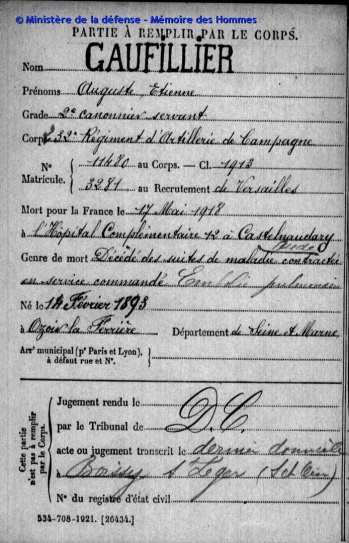 © Ministère de la défense - Mémoire des Hommes
PARTIE À REMPLIR PAR LE CORPS.
Nom GAUFILLIER
Prénoms Auguste Etienne
Grade 2e canonnier servant
Corps 232e Régiment d'Artillerie de Campagne
N° 11480 au Corps. — Cl. 1913
Matricule. 3281 au Recrutement de Versailles
Mort pour la France le 17 Mai 1918
à l'Hôpital Complémentaire 12 à Castelnaudary
Aude
Genre de mort Décédé des suites de maladie contractée
en service commandé Embolie pulmonaire
Né le 14 Février 1893
à Ozoir la Ferrière Département de Seine et Marne
Arrt municipal (pr Paris et Lyon),
à défaut rue et N°.
Cette partie
n'est pas à remplir
par le Corps.
Jugement rendu le
par le Tribunal de D.C.
acte ou jugement transcrit le dernier domicile
à Boissy St Léger (Set Oise)
N° du registre d'état civil
534-708-1921. [26434.]